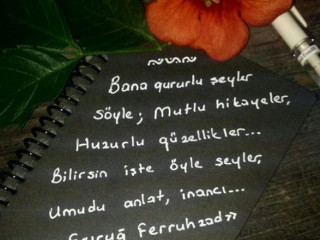 Bana gururlu şeyler
söyle; Mutlu hikayeler,
Huzurlu güzellikler...
Bilirsin işte öyle şeyler,
Umudu anlat, inancı...
Furuğ Ferruhzad